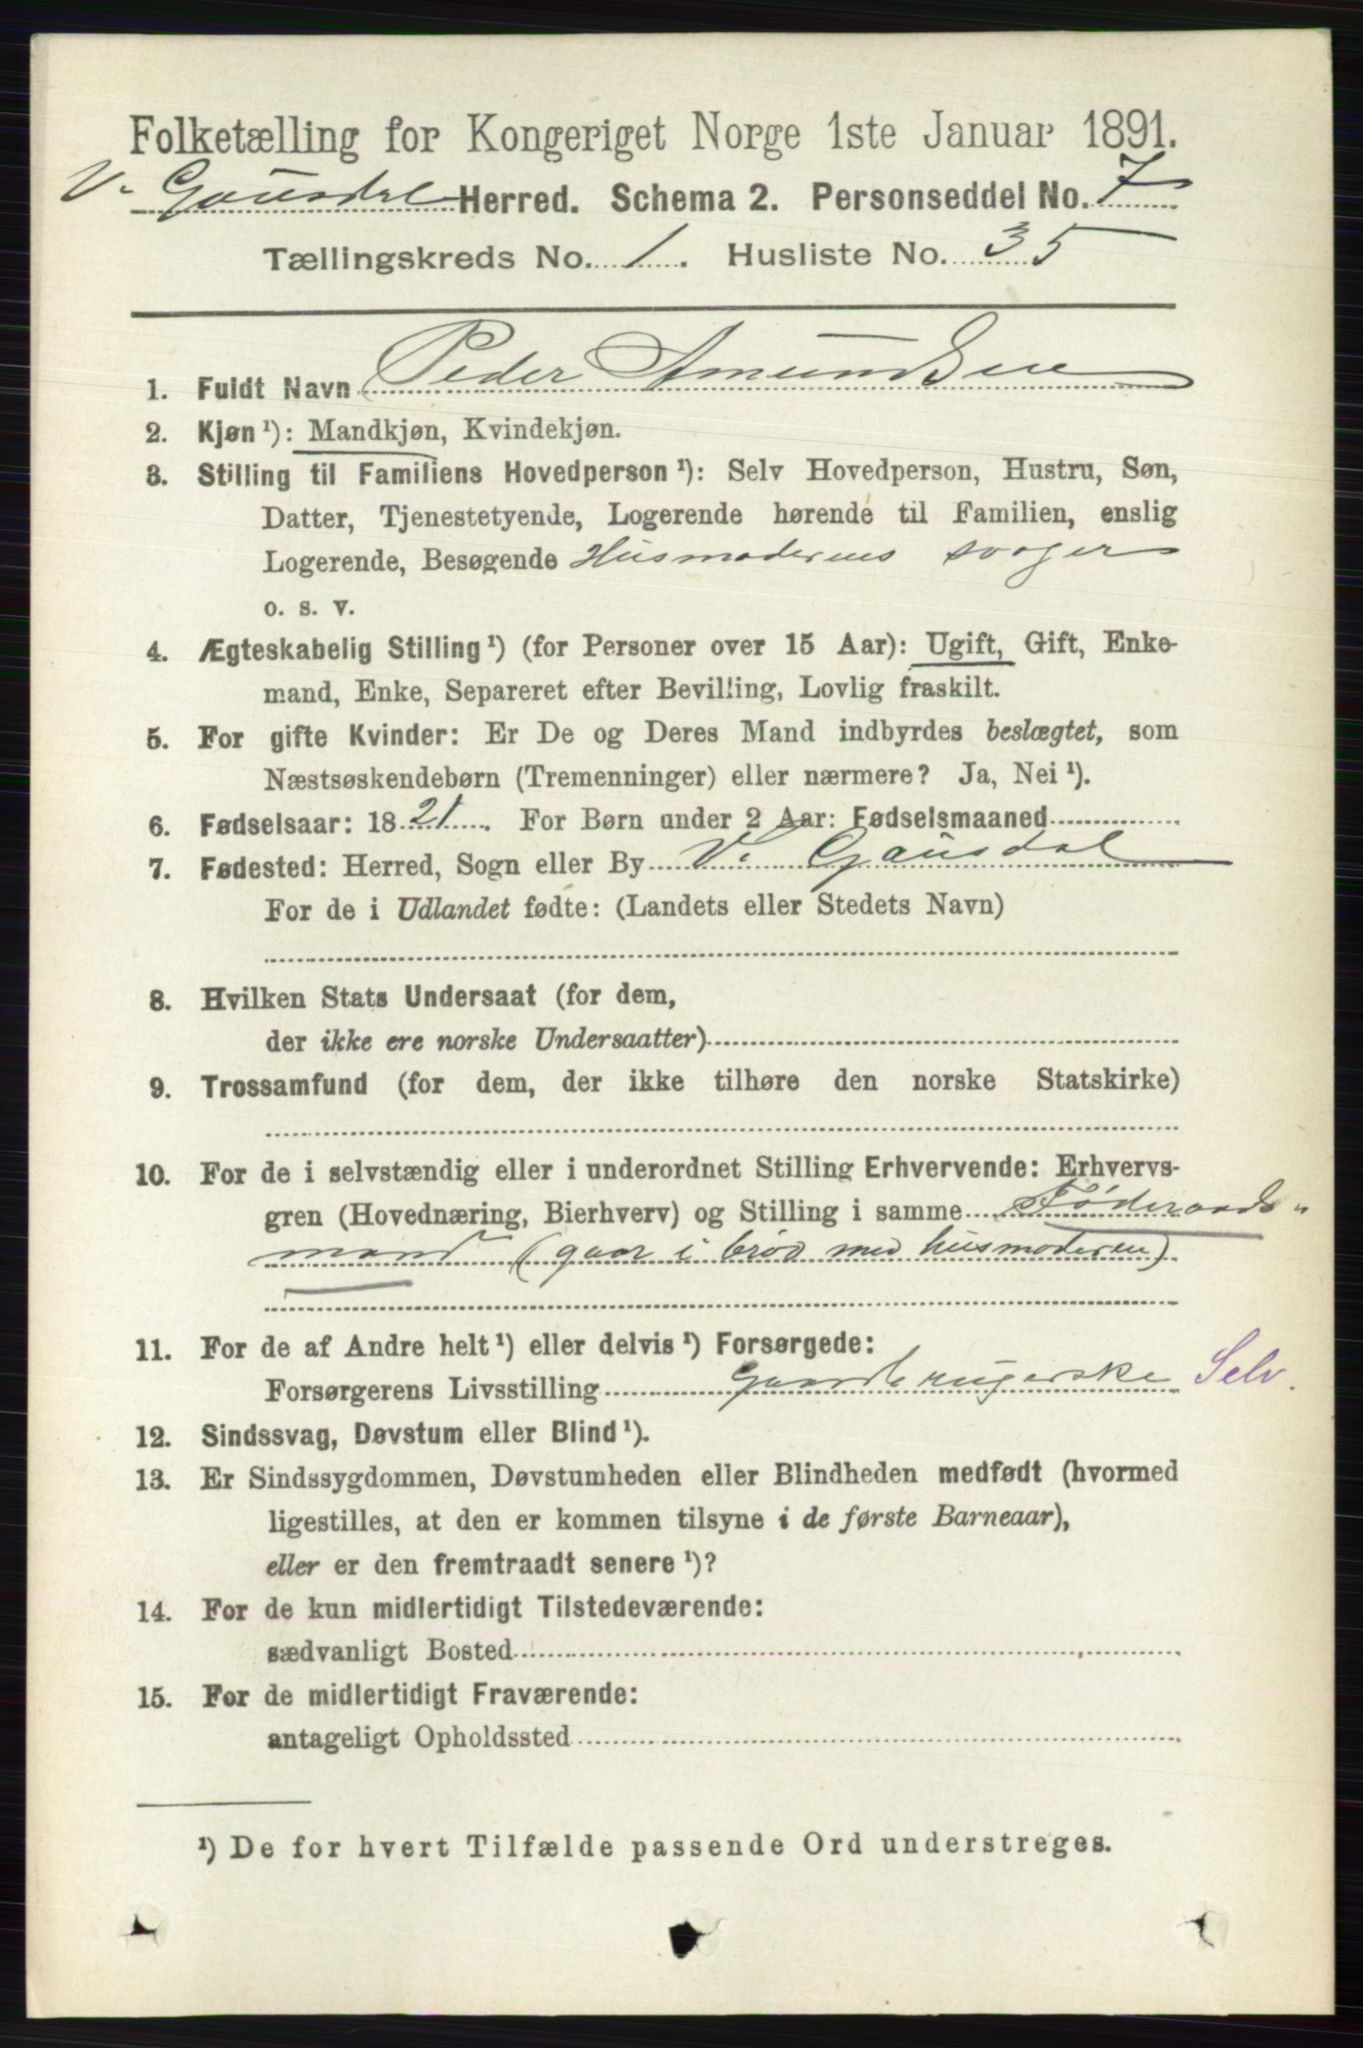 Folketælling for Kongeriget Norge 1ste Januar 1891.
V. Gausdal Herred. Schema 2. Personseddel No. 7
Tællingskreds No. 1. Husliste No. 35
1. Fuldt Navn Peder Amundsen
2. Kjøn ¹): Mandkjøn, Kvindekjøn.
3. Stilling til Familiens Hovedperson ¹): Selv Hovedperson, Hustru, Søn,
Datter, Tjenestetyende, Logerende hørende til Familien, enslig
Logerende, Besøgende Husmoderens svoger
o. s. v.
4. Ægteskabelig Stilling ¹) (for Personer over 15 Aar): Ugift, Gift, Enke-
mand, Enke, Separeret efter Bevilling, Lovlig fraskilt.
5. For gifte Kvinder: Er De og Deres Mand indbyrdes beslægtet, som
Næstsøskendebørn (Tremenninger) eller nærmere? Ja, Nei ¹).
6. Fødselsaar: 1821. For Børn under 2 Aar: Fødselsmaaned
7. Fødested: Herred, Sogn eller By V. Gausdal
For de i Udlandet fødte: (Landets eller Stedets Navn)
8. Hvilken Stats Undersaat (for dem,
der ikke ere norske Undersaatter)
9. Trossamfund (for dem, der ikke tilhøre den norske Statskirke)
10. For de i selvstændig eller i underordnet Stilling Erhvervende: Erhvervs-
gren (Hovednæring, Bierhverv) og Stilling i samme Föderaads-
mand (gaar i brød med husmoderen)
11. For de af Andre helt ¹) eller delvis ¹) Forsørgede:
Forsørgerens Livsstilling Gaardbrugerske Selv.
12. Sindssvag, Døvstum eller Blind ¹).
13. Er Sindssygdommen, Døvstumheden eller Blindheden medfødt (hvormed
ligestilles, at den er kommen tilsyne i de første Barneaar),
eller er den fremtraadt senere ¹)?
14. For de kun midlertidigt Tilstedeværende:
sædvanligt Bosted
15. For de midlertidigt Fraværende:
antageligt Opholdssted
¹) De for hvert Tilfælde passende Ord understreges.